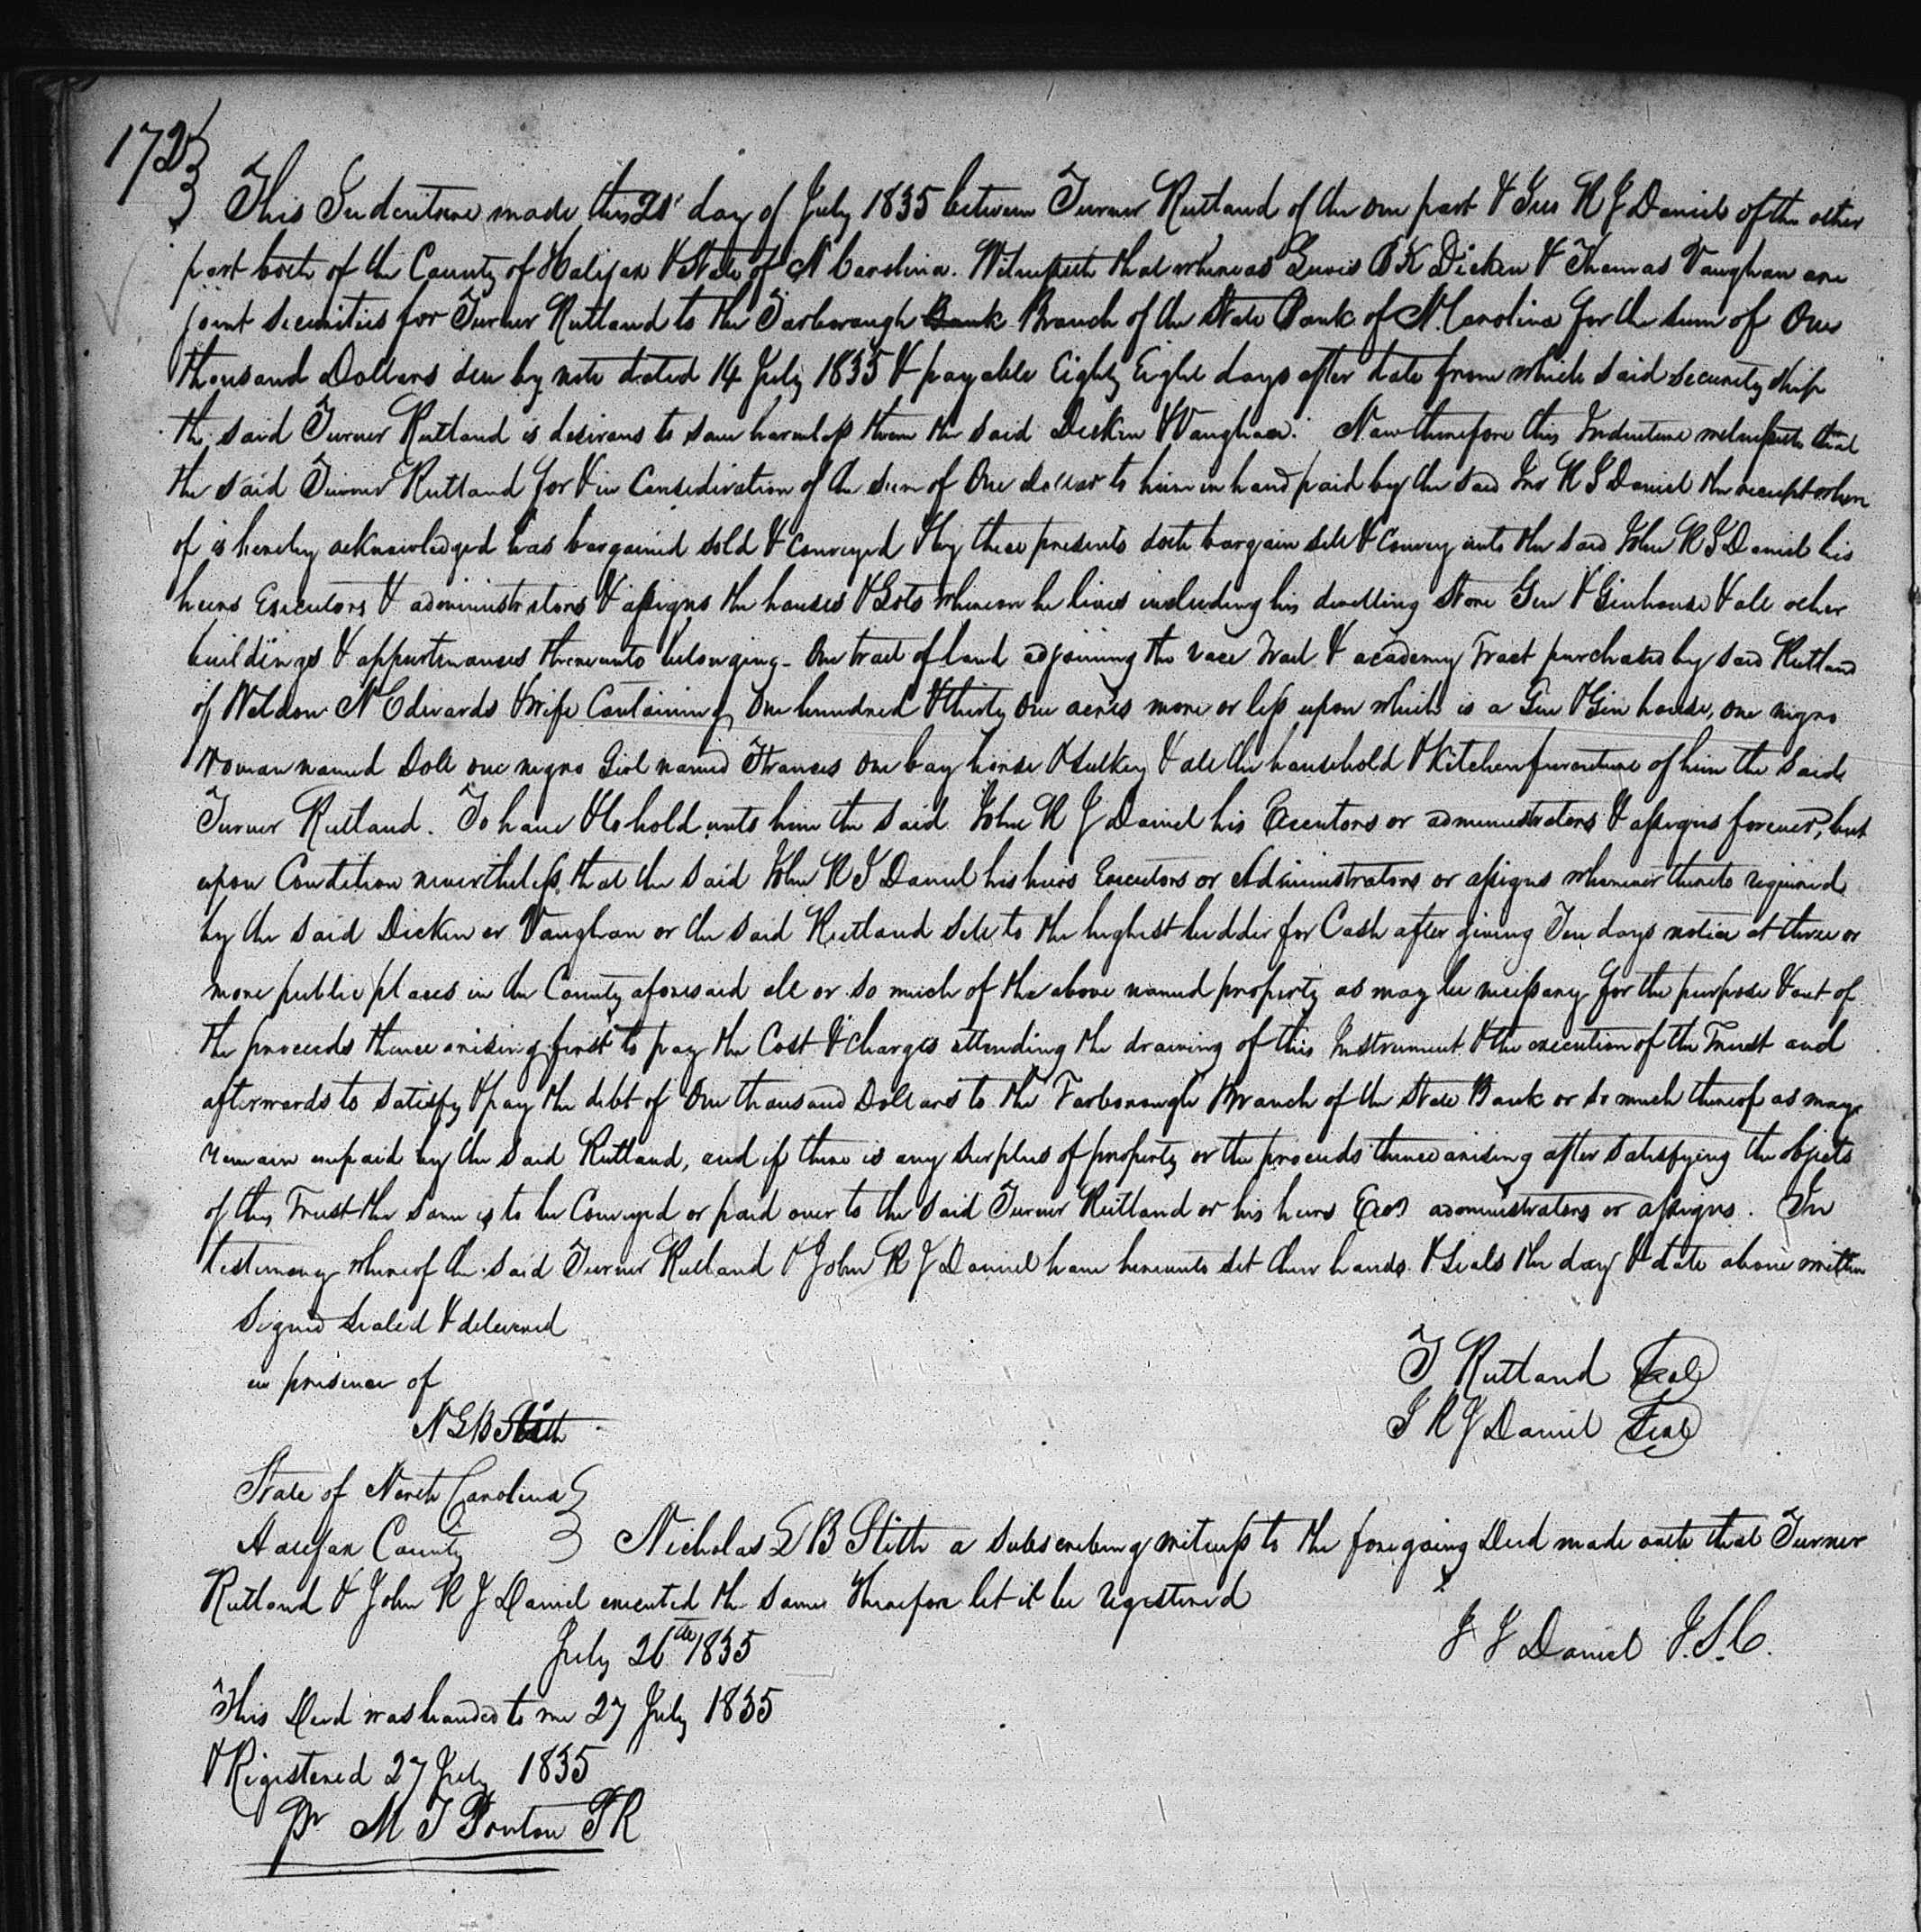 172
This Indenture made this 21st day of July 1835 between Turner Rutland of the one part & Jno R J Daniel of the other
part both of the County of Halifax & State of N Carolina. Witnesseth that whereas Lewis B K Dicken & Thomas Vaughan are
joint securities for Turner Rutland to the Tarborough Bank Branch of the State Bank of N. Carolina for the sum of One
thousand Dollars due by note dated 14 July 1835 & payable Eighty Eight days after date from which said security ship
the said Turner Rutland is desirous to save harmless them the said Dicken & Vaughan. Now therefore this Indenture witnesseth that
the said Turner Rutland for & in Consideration of the sum of One dollar to him in hand paid by the said Jno R J Daniel the receipt when
of is hereby acknowledged has bargained sold & conveyed & by these presents doth bargain sell & convey unto the said John R J Daniel his
heirs Executors & administrators & assigns the houses & Lots whereon he lives including his dwelling Store Gin & Ginhouse & all other
buildings & appurtenances thereunto belonging - One tract of land adjoining the race Trad & academy Tract purchased by said Rutland
of Weldon N Edwards & wife Containing One hundred & thirty One acres more or less upon which is a Gin & Gin house, one negro
Woman named Doll one negro Girl named Frances One bay horse & sulkey & all the household & Kitchen furniture of him the said
Turner Rutland. To have & to hold unto him the said John R J Daniel his Executors or administrators & assigns forever, but
upon Condition nevertheless, that the said John R J Daniel his heirs Executors or Administrators or assigns whenever thereto required
by the said Dicken or Vaughan or the said Rutland sell to the highest bidder for Cash after giving Ten days notice at three or
more public places in the County aforesaid all or so much of the above named property as may be necessary for the purpose & out of
the proceeds thence arising first to pay the Cost & charges attending the drawing of this Instrument & the execution of the Trust and
afterwards to satisfy & pay the debt of One thousand Dollars to the Tarborough Branch of the State Bank or so much thereof as may
remain unpaid by the said Rutland, and if there is any surplus of property or the proceeds thence arising after satisfying the objects
of this Trust the same is to be Conveyed or paid over to the said Turner Rutland or his heirs Exors administrators or assigns. In
testimony whereof the said Turner Rutland & John R J Daniel have hereunto set their hands & seals the day & date above written
Signed sealed & delivered
in presence of
T Rutland Seal
N L B Stith
J R J Daniel Seal
State of North Carolina
Halifax County Nicholas L B Stith a subscribing witness to the foregoing Deed made oath that Turner
Rutland & John R J Daniel executed the same therefore let it be registered
July 26th 1835
J J Daniel J.S.C.
This Deed was handed to me 27 July 1835
& Registered 27 July 1835
Pr M T Ponton P R